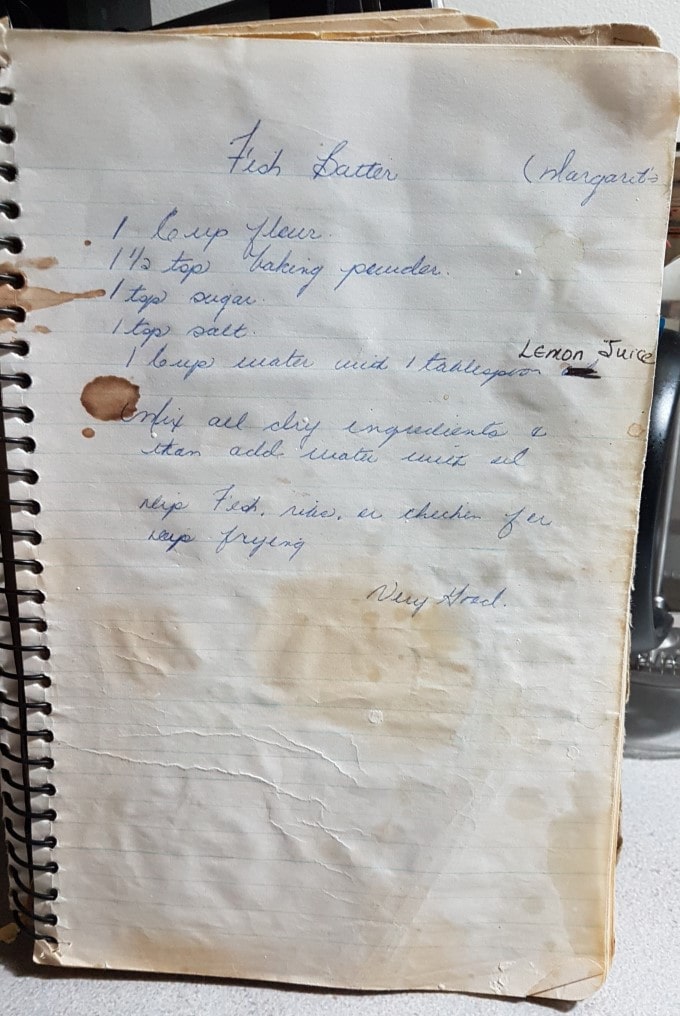 Fish Batter (Margaret's
1 Cup flour.
1 1/2 tsp baking powder.
1 tsp sugar.
1 tsp salt.
1 Cup water and 1 tablespoon Lemon Juice
Mix all dry ingredients &
than add water with
Dip Fish, or chicken for
deep frying
Very Good.